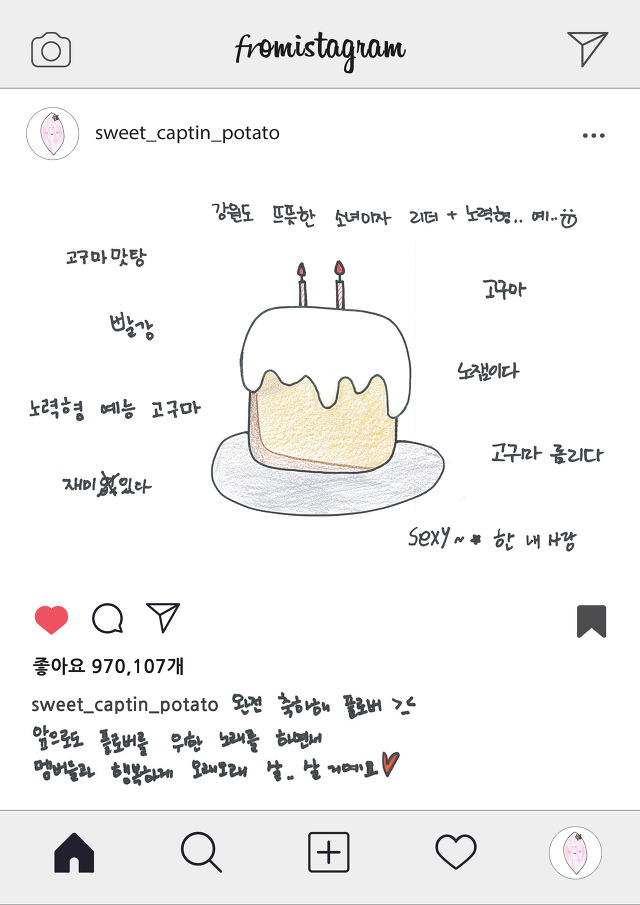 fromistagram
sweet_captin_potato
강원도 뜨뜻한 소녀이자 리더 + 노력형.. 예..
고구마맛탕
고구마
빨강
노잼이다
노력형 예능 고구마
고구마 롤리다
재미있다
sexy~ 한 내 사랑
좋아요 970,107개
sweet_captin_potato 완전 축하해 플로버 >_<
앞으로도 플로버를 위한 노래를 하면서
멤버들과 행복하게 오래오래 살.. 살 거예요